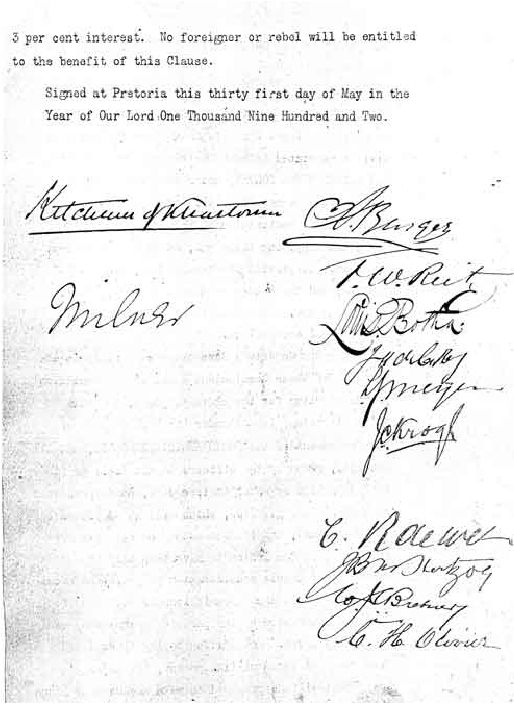 3 per cent interest. No foreigner or rebel will be entitled
to the benefit of this Clause.
Signed at Pretoria this thirty first day of May in the
Year of Our Lord One Thousand Nine Hundred and Two.
Kitchener of Khartoum
S. W. Burger
F. W. Reitz
Milner
Louis Botha
J. H. de la Rey
L. J. Meyer
J C Krogh
C. R de Wet
J B M Hertzog
W J C Brebner
C. H. Olivier